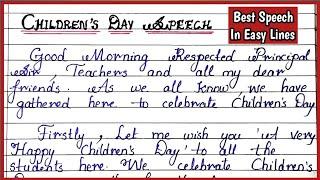 CHILDREN'S DAY SPEECH
Best Speech
In Easy Lines
Good Morning Respected Principal
Sir, Teachers and all my dear
friends. As we all know, we have
gathered here to celebrate Children's Day
Firstly, Let me wish you 'A very
Happy Children's Day' to all the
students here. We celebrate Children's